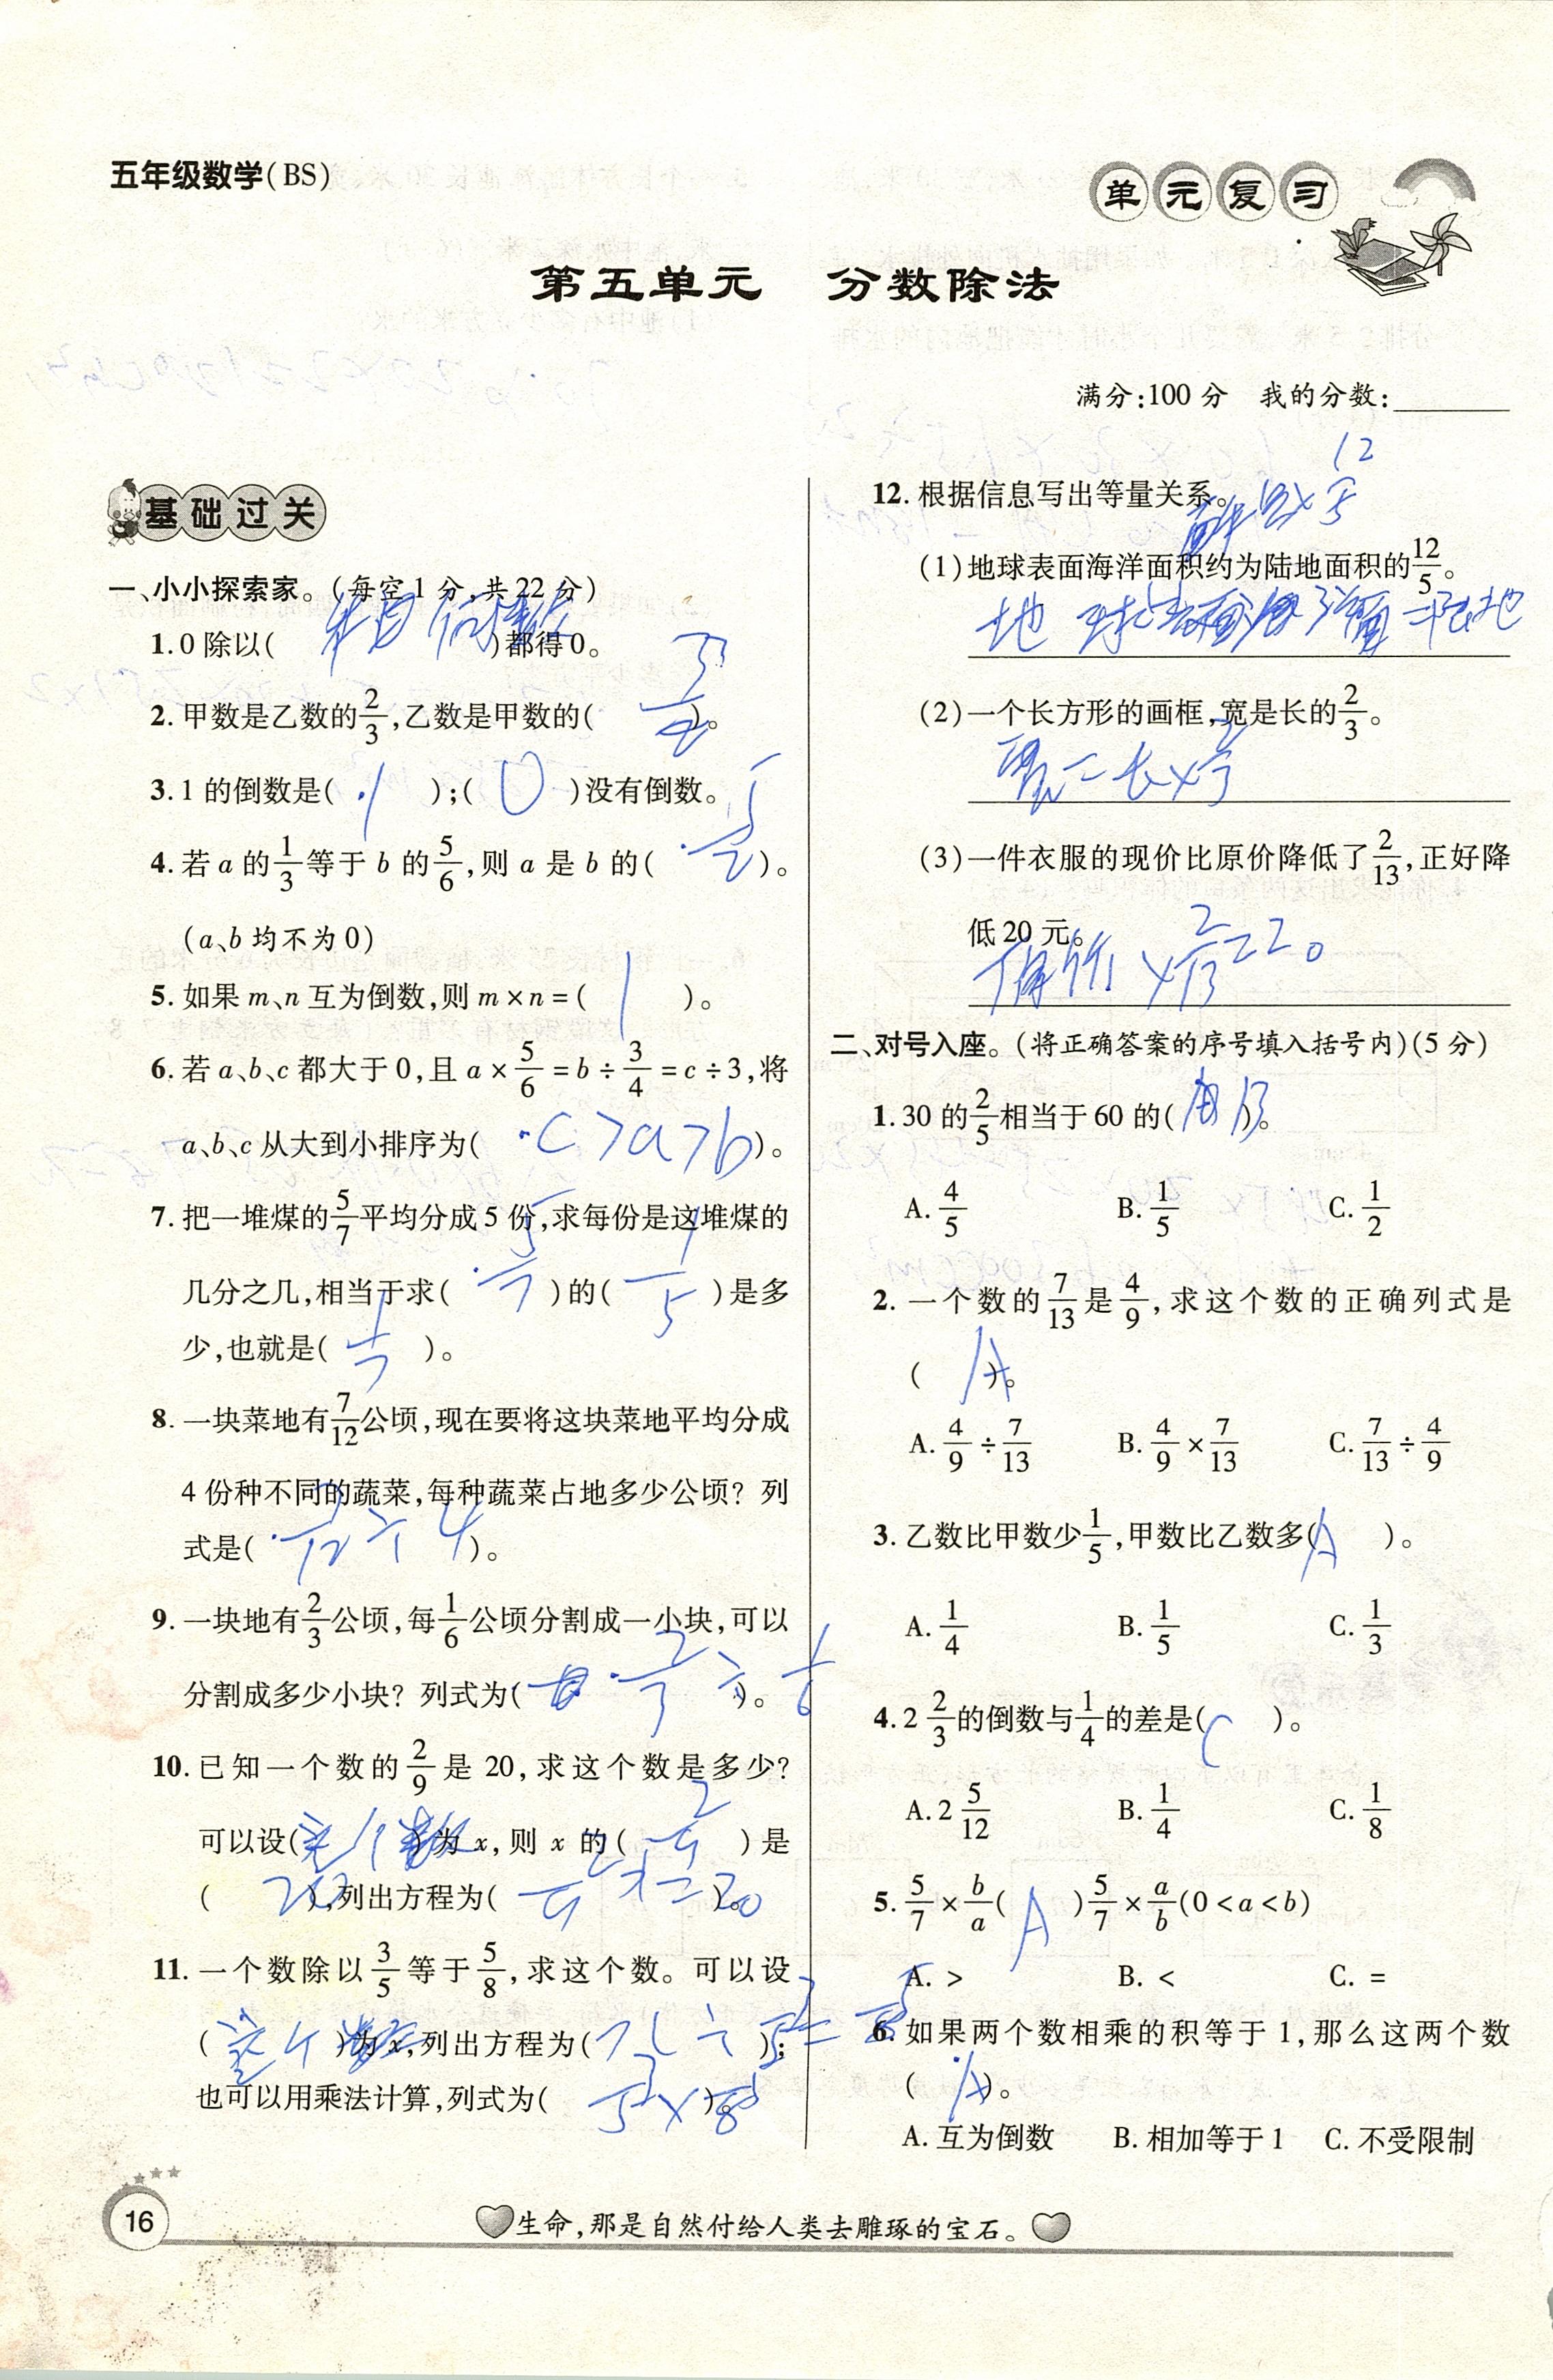 五年级数学(BS)
单元复习
第五单元 分数除法
满分:100分 我的分数:
基础过关
一、小小探索家。(每空1分,共22分)
1. 0除以( )都得0。
2. 甲数是乙数的2/3,乙数是甲数的( 3/2 )。
3. 1的倒数是( 1 );( 0 )没有倒数。
4. 若a的1/3等于b的5/6,则a是b的( 5/2 )。
(a、b均不为0)
5. 如果m、n互为倒数,则m×n=( 1 )。
6. 若a、b、c都大于0,且a×5/6=b÷3/4=c÷3,将
a、b、c从大到小排序为( c>a>b )。
7. 把一堆煤的5/7平均分成5份,求每份是这堆煤的
几分之几,相当于求( 5/7 )的( 1/5 )是多
少,也就是( 1/7 )。
8. 一块菜地有7/12公顷,现在要将这块菜地平均分成
4份种不同的蔬菜,每种蔬菜占地多少公顷? 列
式是( 7/12÷4 )。
9. 一块地有2/3公顷,每1/6公顷分割成一小块,可以
分割成多少小块? 列式为( 2/3÷1/6 )。
10. 已知一个数的2/9是20,求这个数是多少?
可以设( 这个数 )为x,则x的( 2/9 )是
( 20 ),列出方程为( 2/9x=20 )。
11. 一个数除以3/5等于5/8,求这个数。可以设
( 这个数 )为x,列出方程为( x÷3/5=5/8 );
也可以用乘法计算,列式为( 3/5×5/8 )。
12. 根据信息写出等量关系。
×12/5
(1)地球表面海洋面积约为陆地面积的12/5。
(2)一个长方形的画框,宽是长的2/3。
宽=长×2/3
(3)一件衣服的现价比原价降低了2/13,正好降
低20元。
原价×2/13=20
二、对号入座。(将正确答案的序号填入括号内)(5分)
1. 30的2/5相当于60的( B )。
A. 4/5 B. 1/5 C. 1/2
2. 一个数的7/13是4/9,求这个数的正确列式是
( A )。
A. 4/9÷7/13 B. 4/9×7/13 C. 7/13÷4/9
3. 乙数比甲数少1/5,甲数比乙数多( A )。
A. 1/4 B. 1/5 C. 1/3
4. 2 2/3的倒数与1/4的差是( C )。
A. 2 5/12 B. 1/4 C. 1/8
5. 5/7×b/a( A )5/7×a/b(0<a<b)
A. > B. < C. =
6. 如果两个数相乘的积等于1,那么这两个数
( A )。
A. 互为倒数 B. 相加等于1 C. 不受限制
16
生命,那是自然付给人类去雕琢的宝石。